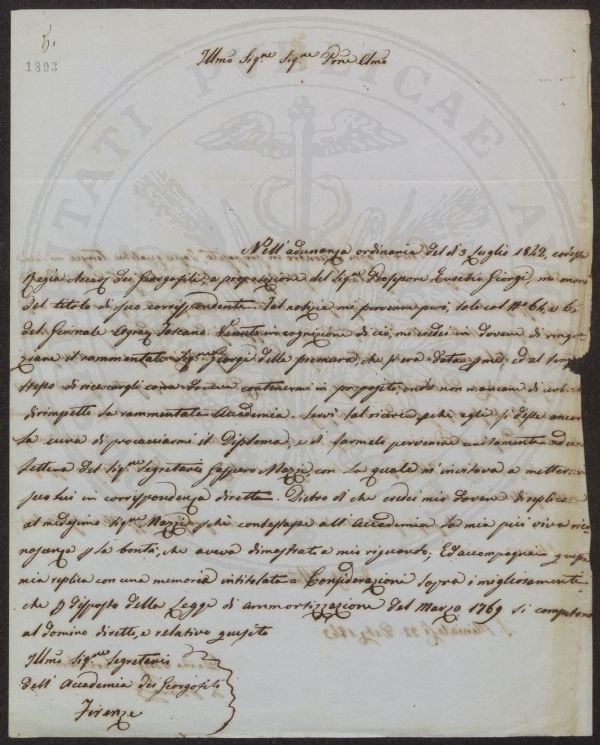 5.
1893
Illmo Sigre Sigre Prone Clmo
Nell'adunanza ordinaria del dì 3 Luglio 1842, codesta
Regia Accad dei Georgofili, a proposizione del Sigre Prospero Eusebio Giorgi, mi onorò
del titolo di suo corrispondente. Tal notizia mi pervenne però, solo col N° 64, e 65
del Giornale Agrario Toscano. Venuto in cognizione di ciò, mi credei in dovere di ringra
ziare il rammentato Sigre Giorgi della premura, che s'era data p me, ed al tempo
stesso di ricercargli come dovessi contenermi in proposito, onde non mancare di
dirimpetto la rammentata Accademia. Servì tal ricerca pchè egli si desse ancor
la cura di procacciarmi il Diploma, e di farmelo pervenire unitamente ad una
lettera del Sigre Segretario Gaspero Mazzi con la quale m'invitava a metter
seco lui in corrispondenza diretta. Dietro di che credei mio dovere di replicare
al medesimo Sigre Mazzi pchè contestasse all'Accademia la mia più viva rico
noscenza p la bontà, che aveva dimostrata a mio riguardo; Ed accompagnai questa
mia replica con una memoria intitolata = Considerazioni sopra i miglioramenti
che p disposto della Legge di Ammortizzazione del Marzo 1769 si competono
al domino diretto, e relativo quesito
Illmo Sigre Segretario
dell'Accademia dei Georgofili
Firenze